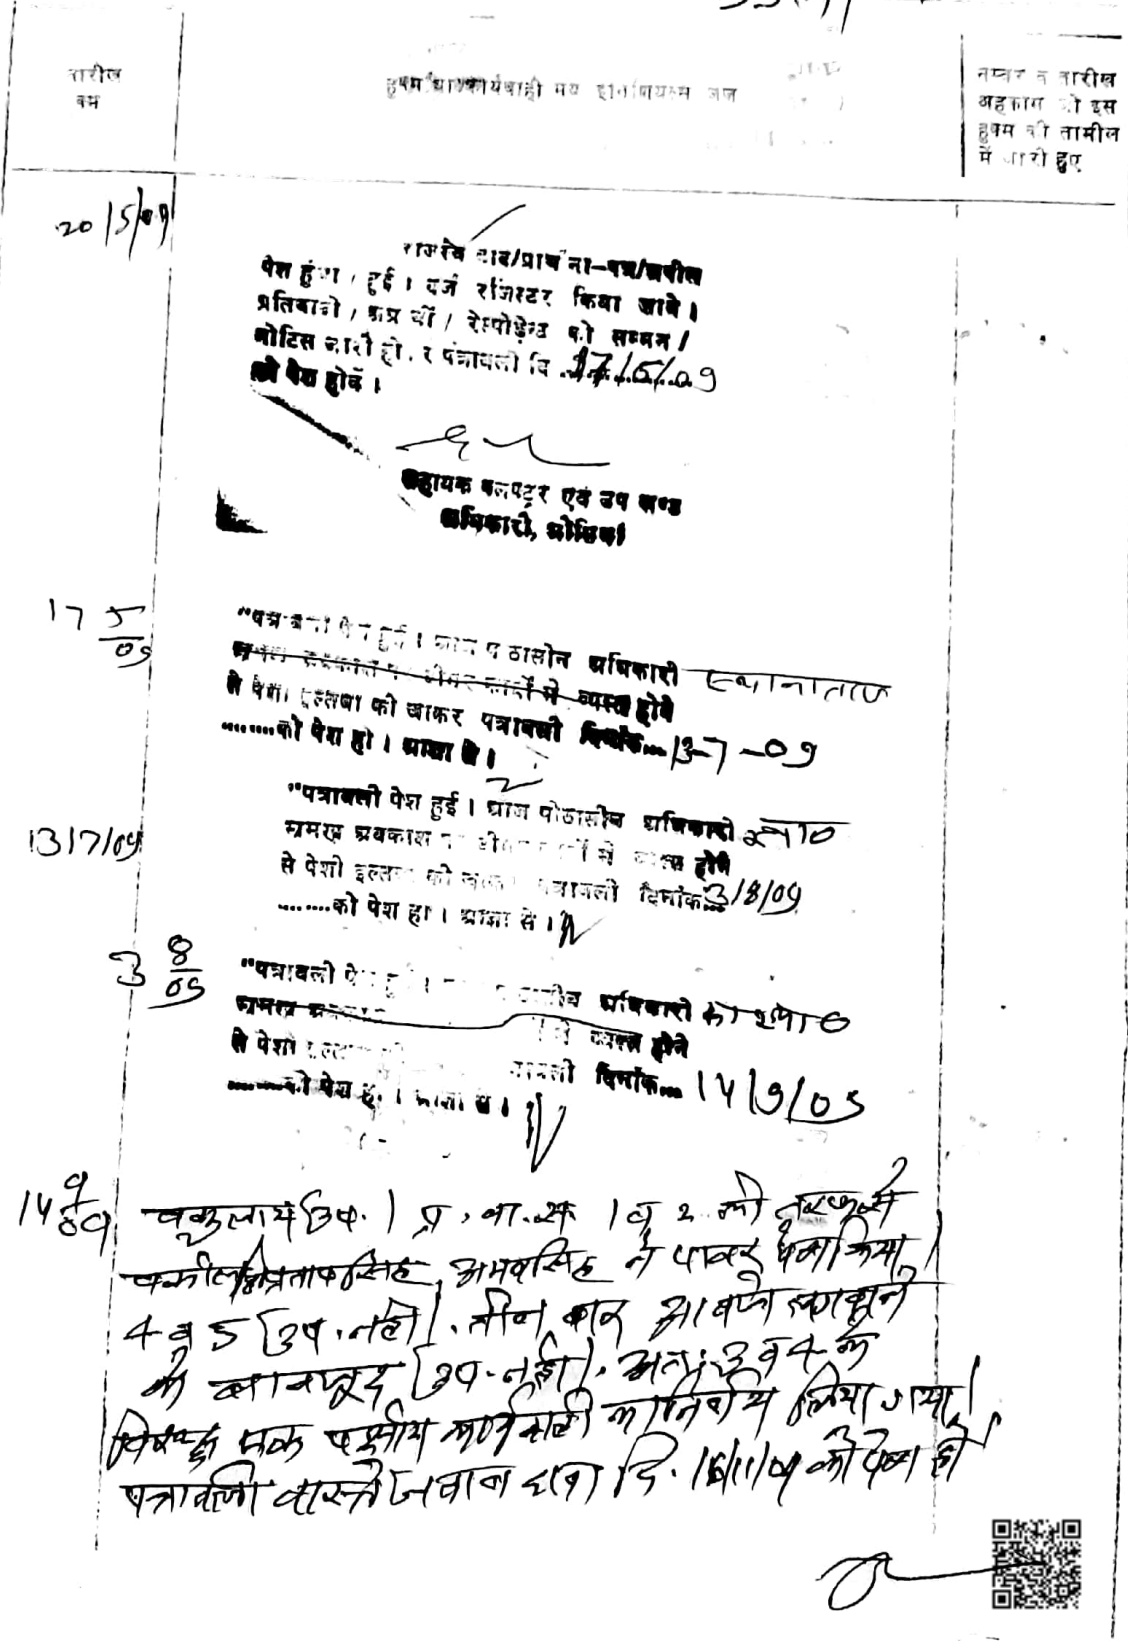 तारीख
हुक्म
हुक्म या कार्यवाही मय इनीशियल्स जज
नम्बर व तारीख
अहकाम जो इस
हुक्म की तामील
में जारी हुए
20/5/09
राजस्व वाद/प्रार्थना-पत्र/अपील
पेश हुआ / हुई । दर्ज रजिस्टर किया जावे ।
प्रतिवादी / अप्रार्थी / रेस्पोडेन्ट को सम्मन /
नोटिस जारी हो. पत्रावली दि .17/5/09
को पेश होवें ।
सहायक कलक्टर एवं उप खण्ड
अधिकारी, ओसियां
17 5/09
"पत्रावली पेश हुई । आज पीठासीन अधिकारी स्थानान्तरण
व्यस्त होने
से पेशी इत्तला की जाकर पत्रावली दिनांक... 13-7-09
.........को पेश हो । आज्ञा से ।
13/7/09
"पत्रावली पेश हुई । आज पीठासीन अधिकारी स्था०
भ्रमण अवकाश में व्यस्त होने
से पेशी इत्तला की जाकर पत्रावली दिनांक 3/8/09
.........को पेश हो । आज्ञा से ।
3 8/09
"पत्रावली पेश हुई । पीठासीन अधिकारी का स्था०
में व्यस्त होने
से पेशी इत्तला पत्रावली दिनांक... 14/9/09
.........को पेश हो । आज्ञा से ।
14 9/09
वकुलाय (उप.) प्र. वा. सं. 1 व 2 की तरफ से
वकील सिंह, अभयसिंह ने पावर पेश किया।
4 व 5 (उप. नहीं). तीन बार आवाजे लगवाने
के बावजूद (उप. नहीं). अतः 3 व 4 के
विरुद्ध एक पक्षीय कार्यवाही का निर्णय लिया गया।
पत्रावली वास्ते जवाब दावा दि. 16/11/09 को पेश हो